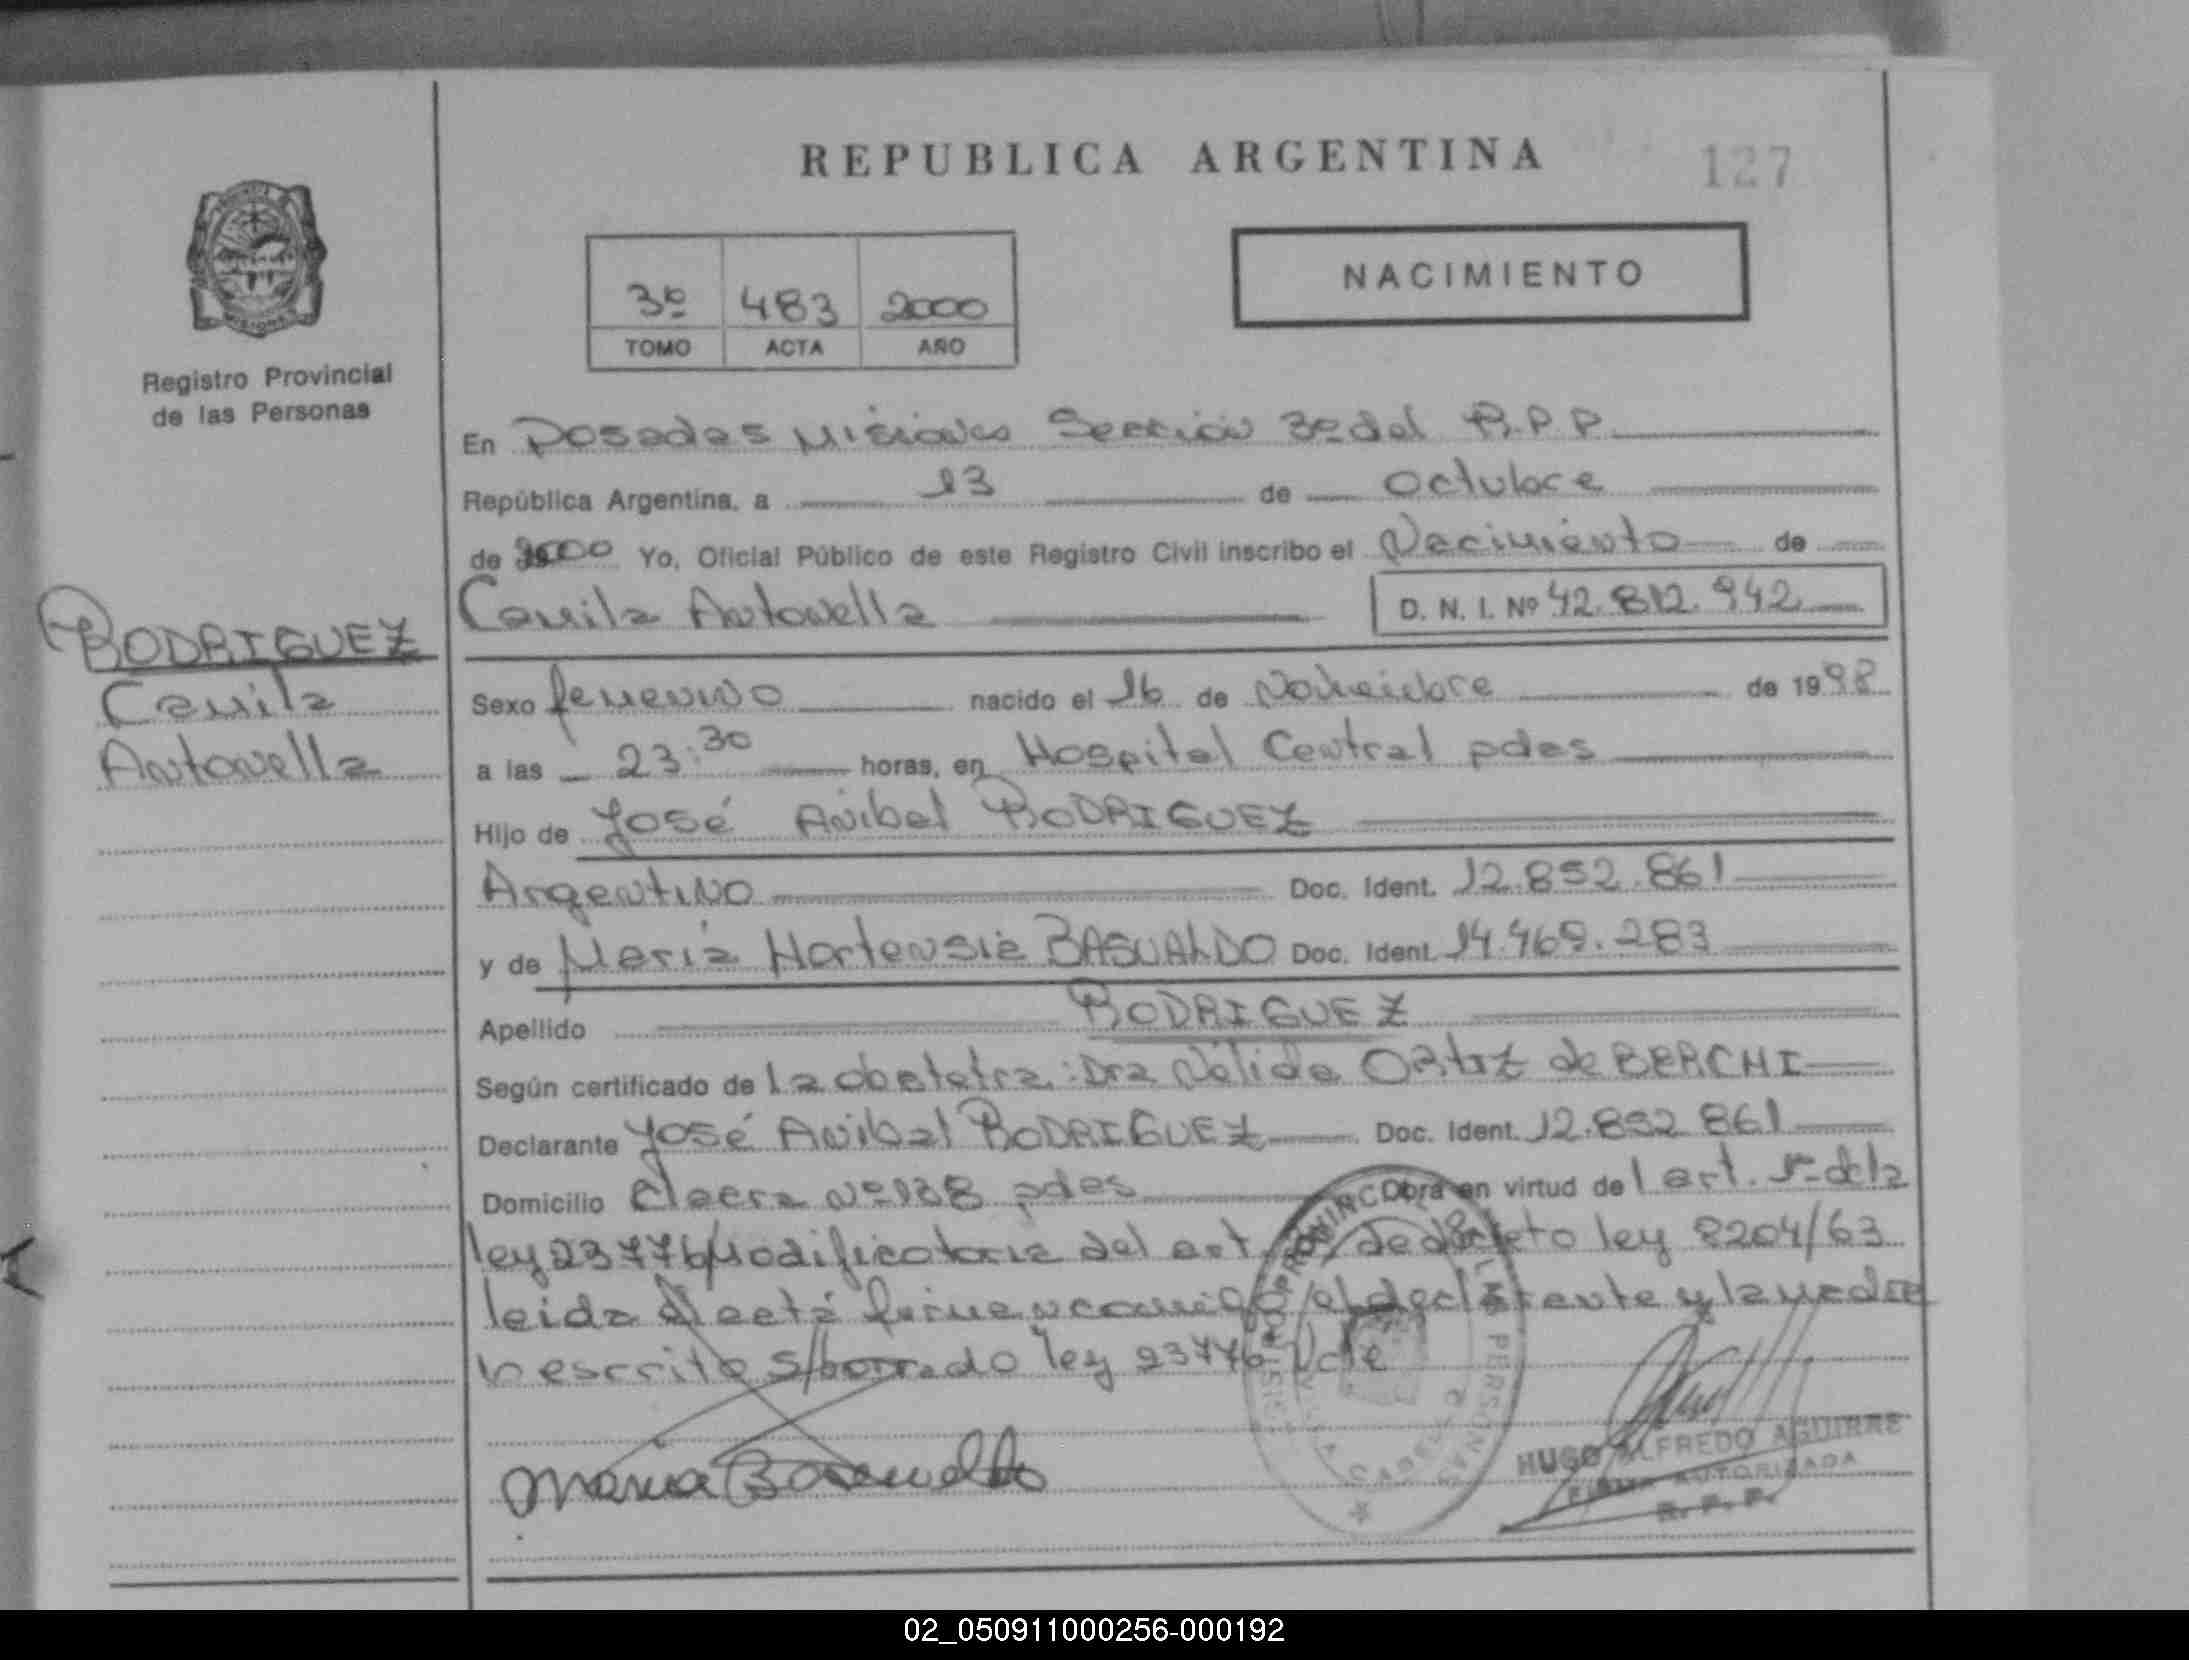 REPUBLICA ARGENTINA
127
NACIMIENTO
3º 483 2000
TOMO ACTA AÑO
MISIONES
Registro Provincial
de las Personas
RODRIGUEZ
Camila
Antonella
En Posadas Misiones Sección 3º del R.P.P.
República Argentina, a 13 de Octubre
de 2000 Yo, Oficial Público de este Registro Civil inscribo el Nacimiento de
Camila Antonella D. N. I. Nº 42.812.942
Sexo femenino nacido el 16 de Noviembre de 1998
a las 23:30 horas, en Hospital Central pdas
Hijo de José Anibal RODRIGUEZ
Argentino Doc. Ident. 12.852.861
y de María Hortensia BASUALDO Doc. Ident. 14.469.283
Apellido RODRIGUEZ
Según certificado de la obstetra: Dra Nélida Ortiz de BERCHI
Declarante José Anibal RODRIGUEZ Doc. Ident. 12.852.861
Domicilio Nº 138 pdas Obra en virtud de l art. 1º de la
ley 23776 Modificatoria del art. decreto ley 8204/63
leida el acta firman conmigo el declarante y la madre
escrito s/borrado ley 23776 Vale
Maria Basualdo
HUGO ALFREDO AGUIRRE
FIRMA AUTORIZADA
R. P. P.
02_050911000256-000192